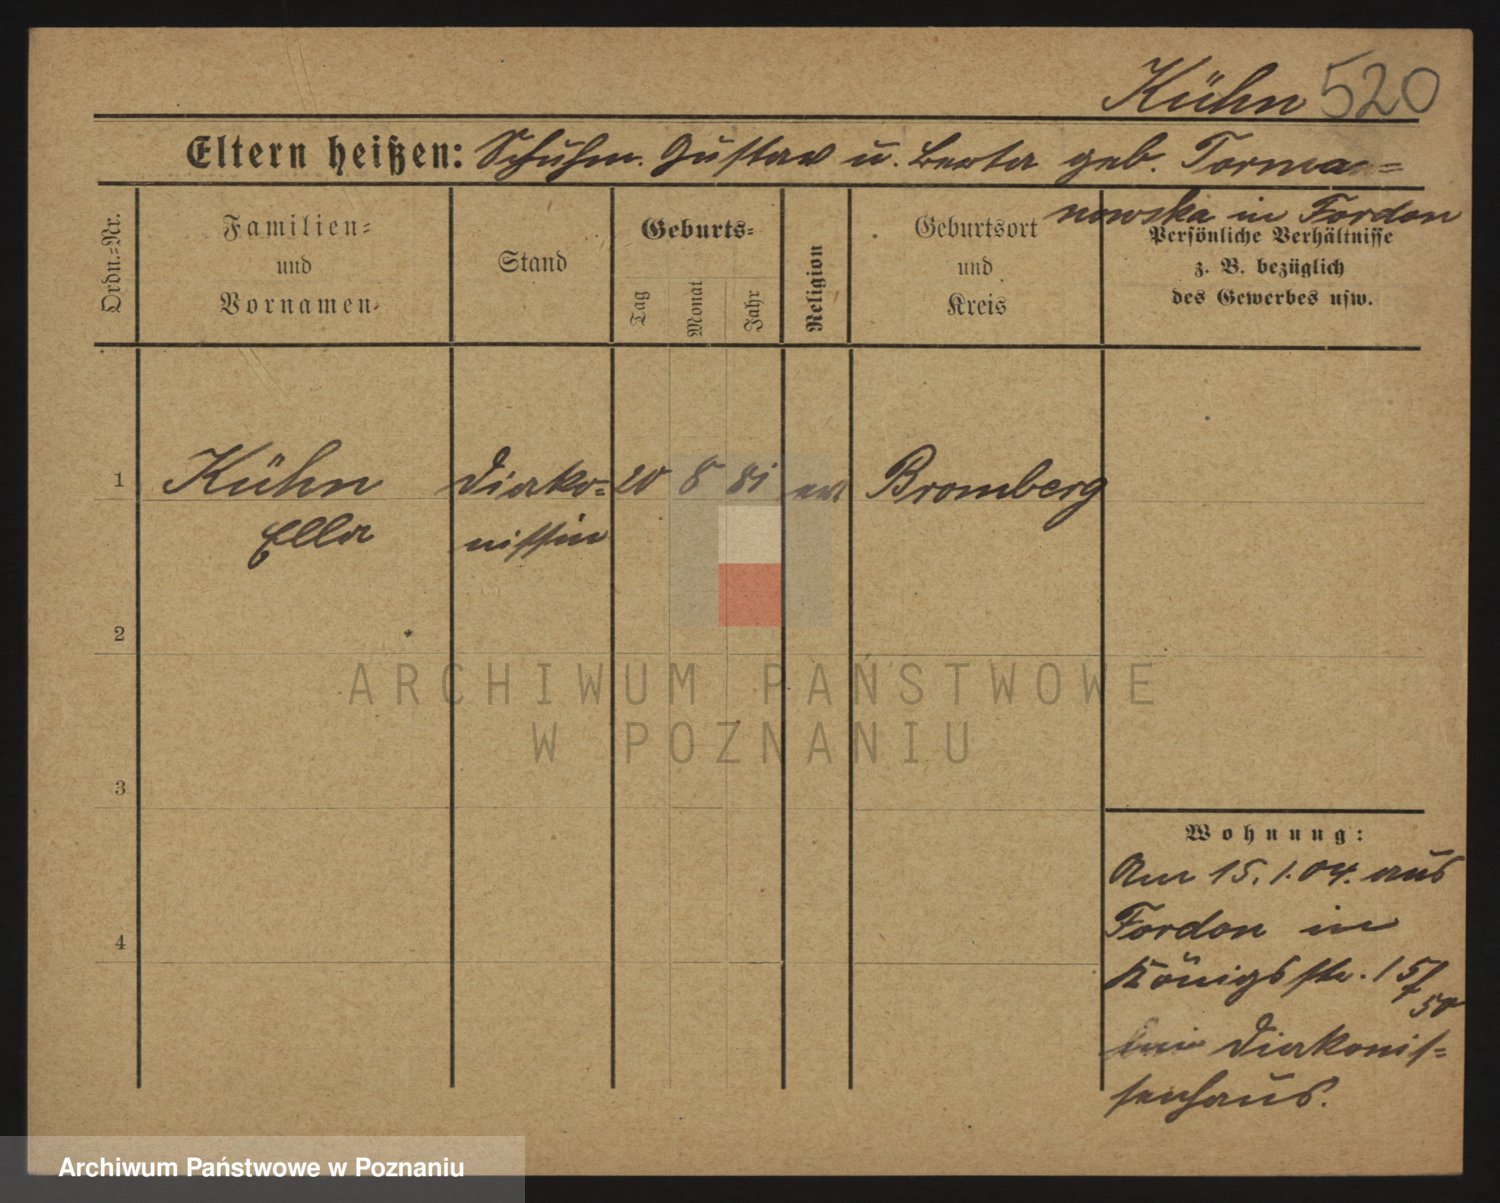 Kühn 520
Eltern heißen: Schuhm. Gustav u. Berta geb. Torma=
nowska in Fordon
Ordn.=Nr.
Familien=
und
Vornamen.
Stand
Geburts=
Tag
Monat
Jahr
Religion
Geburtsort
und
Kreis
Persönliche Verhältnisse
z. B. bezüglich
des Gewerbes usw.
1 Kühn Diako= 20 8 81 ev. Bromberg
Ella nissin
2
3
4
Wohnung:
Am 15.1.04. aus
Fordon in
Königsstr. 15/
50
bei Diakonis=
senhaus.
ARCHIWUM PAŃSTWOWE
W POZNANIU
Archiwum Państwowe w Poznaniu